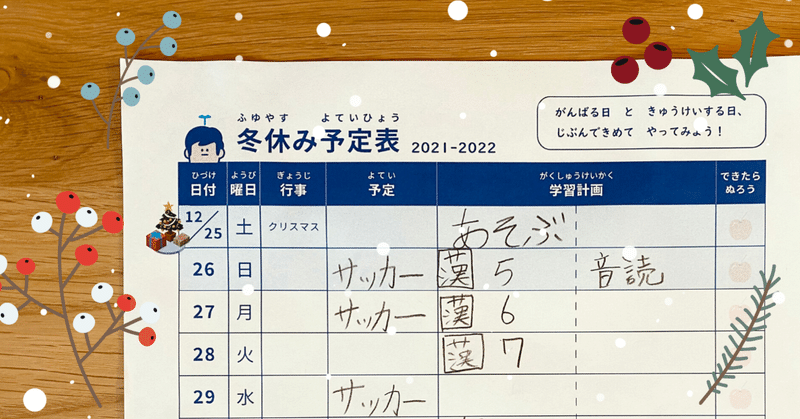 がんばる日 と きゅうけいする日、
じぶんできめて やってみよう！
ふゆやす よていひょう
冬休み予定表 2021-2022
ひづけ ようび ぎょうじ よてい がくしゅうけいかく できたら
日付 曜日 行事 予定 学習計画 ぬろう
12/25 土 クリスマス あそぶ
26 日 サッカー 漢 5 音読
27 月 サッカー 漢 6
28 火 漢 7
29 水 サッカー